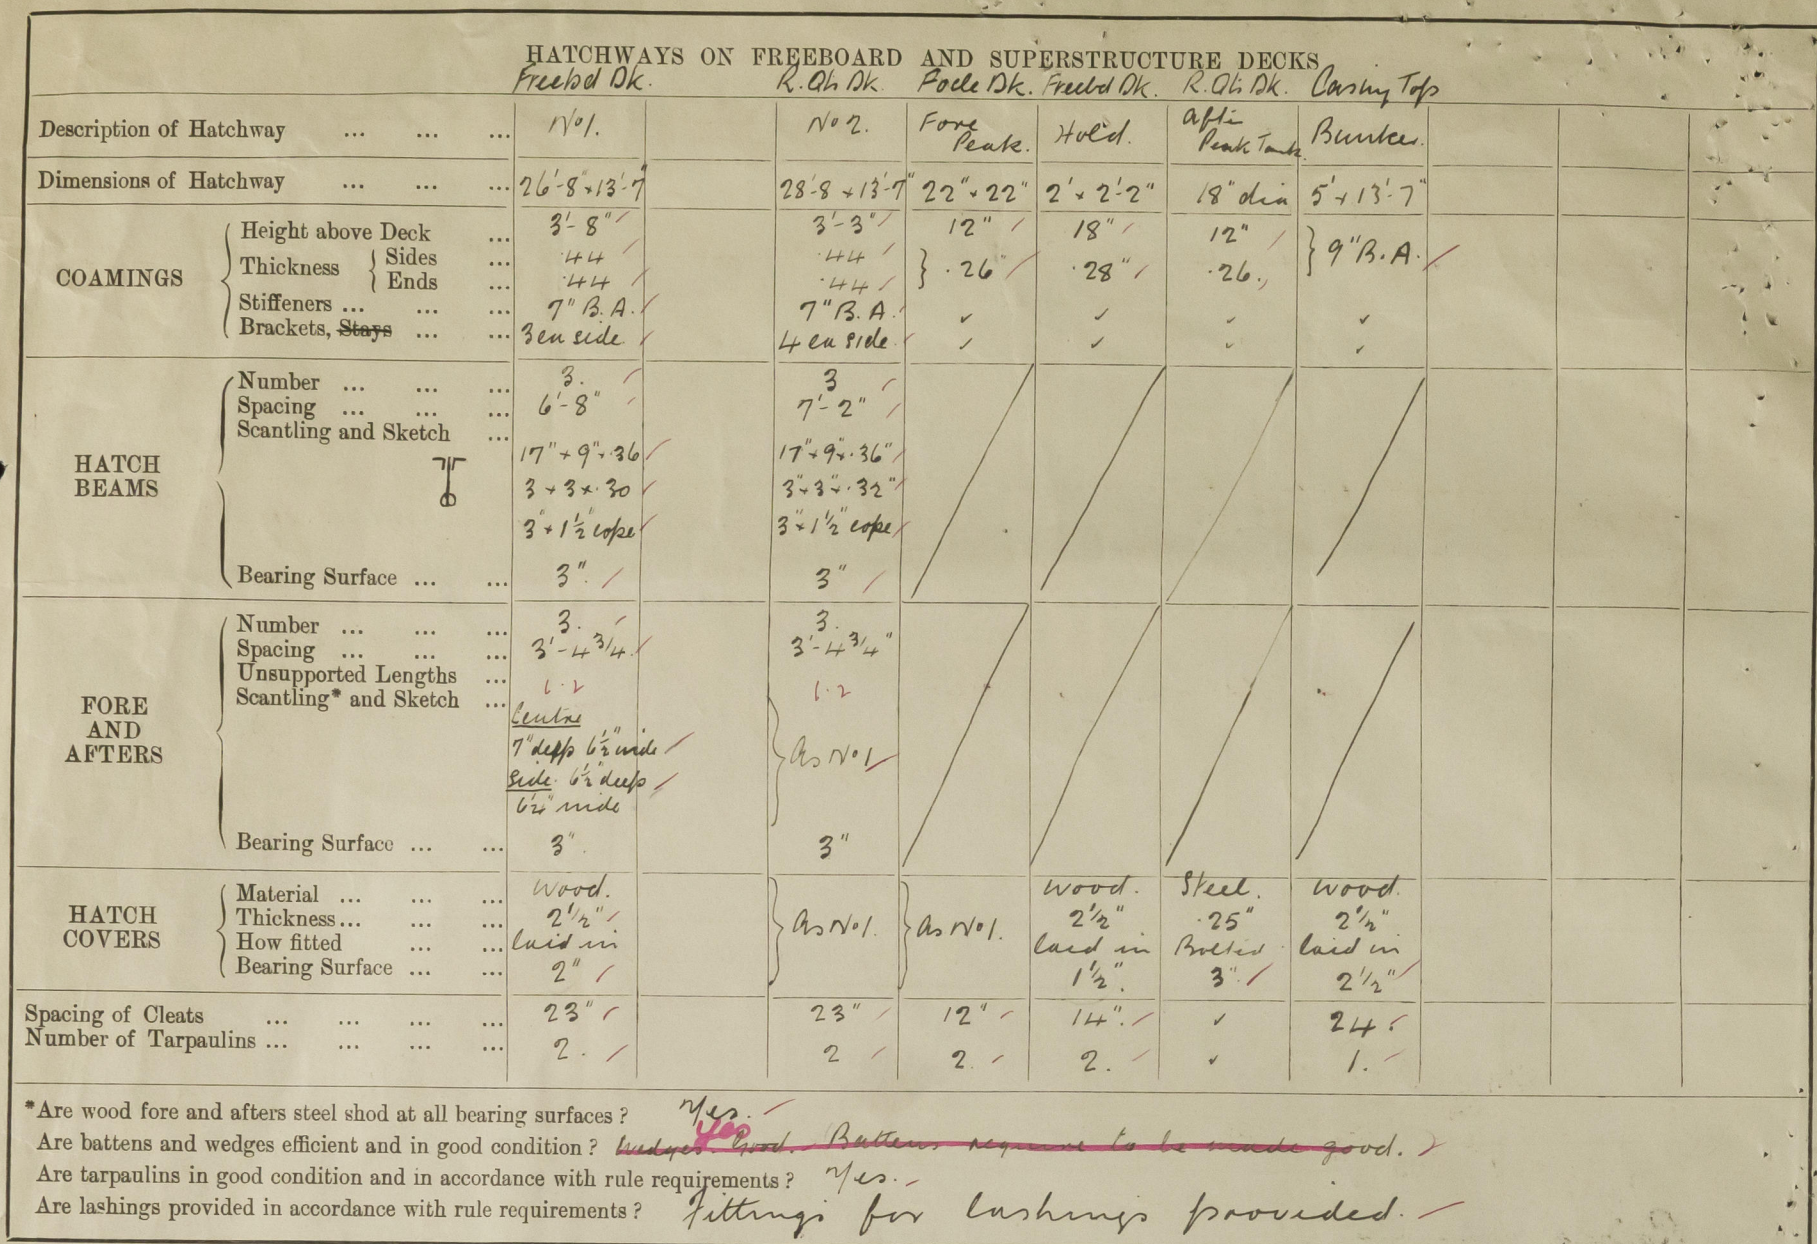 HATCHWAYS ON FREEBOARD AND SUPERSTRUCTURE DECKS
Freebd Dk. R. Qtr Dk. Focle Dk. Freebd Dk. R. Qtr Dk. Casing Top
Description of Hatchway ... ... ... No 1. No 2. Fore Peak. Hold. After Peak Tank. Bunker.
Dimensions of Hatchway ... ... ... 26'-8" x 13'-7" 28'-8 x 13'-7" 22" x 22" 2' x 2'-2" 18" dia 5' x 13'-7"
COAMINGS
Height above Deck ... 3'-8" 3'-3" 12" 18" 12" } 9" B.A.
Thickness { Sides ... .44 .44 } .26" .28" .26
Ends ... .44 .44
Stiffeners ... ... ... 7" B.A. 7" B.A. ✓ ✓ ✓ ✓
Brackets, Stays ... ... 3 ea side. 4 ea side ✓ ✓ ✓ ✓
HATCH BEAMS
Number ... ... ... 3. 3
Spacing ... ... ... 6'-8" 7'-2"
Scantling and Sketch ...
17" x 9" x .36 17" x 9" x .36"
3 x 3 x .30 3" x 3" x .32"
3" x 1½" cope 3" x 1½" cope
Bearing Surface ... ... 3". 3"
FORE AND AFTERS
Number ... ... ... 3. 3.
Spacing ... ... ... 3'-4 3/4 3'-4 3/4"
Unsupported Lengths ...
Scantling* and Sketch ...
Centre
7" deep 6½" wide } As No 1
Side 6½" deep
6½" wide
Bearing Surface ... ... 3" 3"
HATCH COVERS
Material ... ... ... Wood. } As No 1. } As No 1. Wood. Steel. Wood.
Thickness ... ... ... 2½" 2½" .25" 2½"
How fitted ... ... laid in laid in Bolted laid in
Bearing Surface ... ... 2" 1½". 3" 2½"
Spacing of Cleats ... ... ... ... 23" 23" 12" 14". ✓ 24
Number of Tarpaulins ... ... ... ... 2. 2 2. 2. ✓ 1.
*Are wood fore and afters steel shod at all bearing surfaces? Yes.
Yes
Are battens and wedges efficient and in good condition? Wedges Good. Battens require to be made good.
Are tarpaulins in good condition and in accordance with rule requirements? Yes.
Are lashings provided in accordance with rule requirements? Fittings for lashings provided.